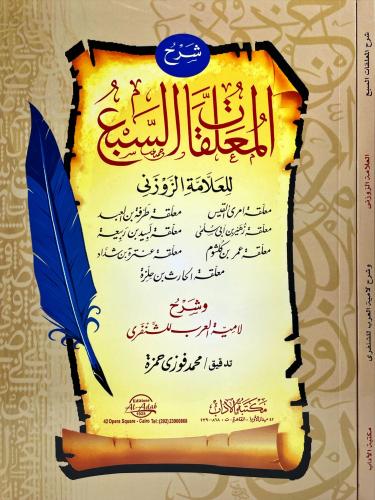 شرح
المعلقات السبع
للعلامة الزوزنى
معلقة امرئ القيس معلقة طرفة بن العبد
معلقة زهير بن أبى سلمى معلقة لبيد بن ربيعة
معلقة عمرو بن كلثوم معلقة عنترة بن شداد
معلقة الحارث بن حلزة
وشرح
لامية العرب للشنفرى
تدقيق / محمد فوزى حمزة
مكتبة الآداب
Editions
Al-Adab
42 Opera Square - Cairo Tel: (202) 23900868
شرح المعلقات السبع
العلامة الزوزنى
وشرح لامية العرب للشنفرى
مكتبة الآداب